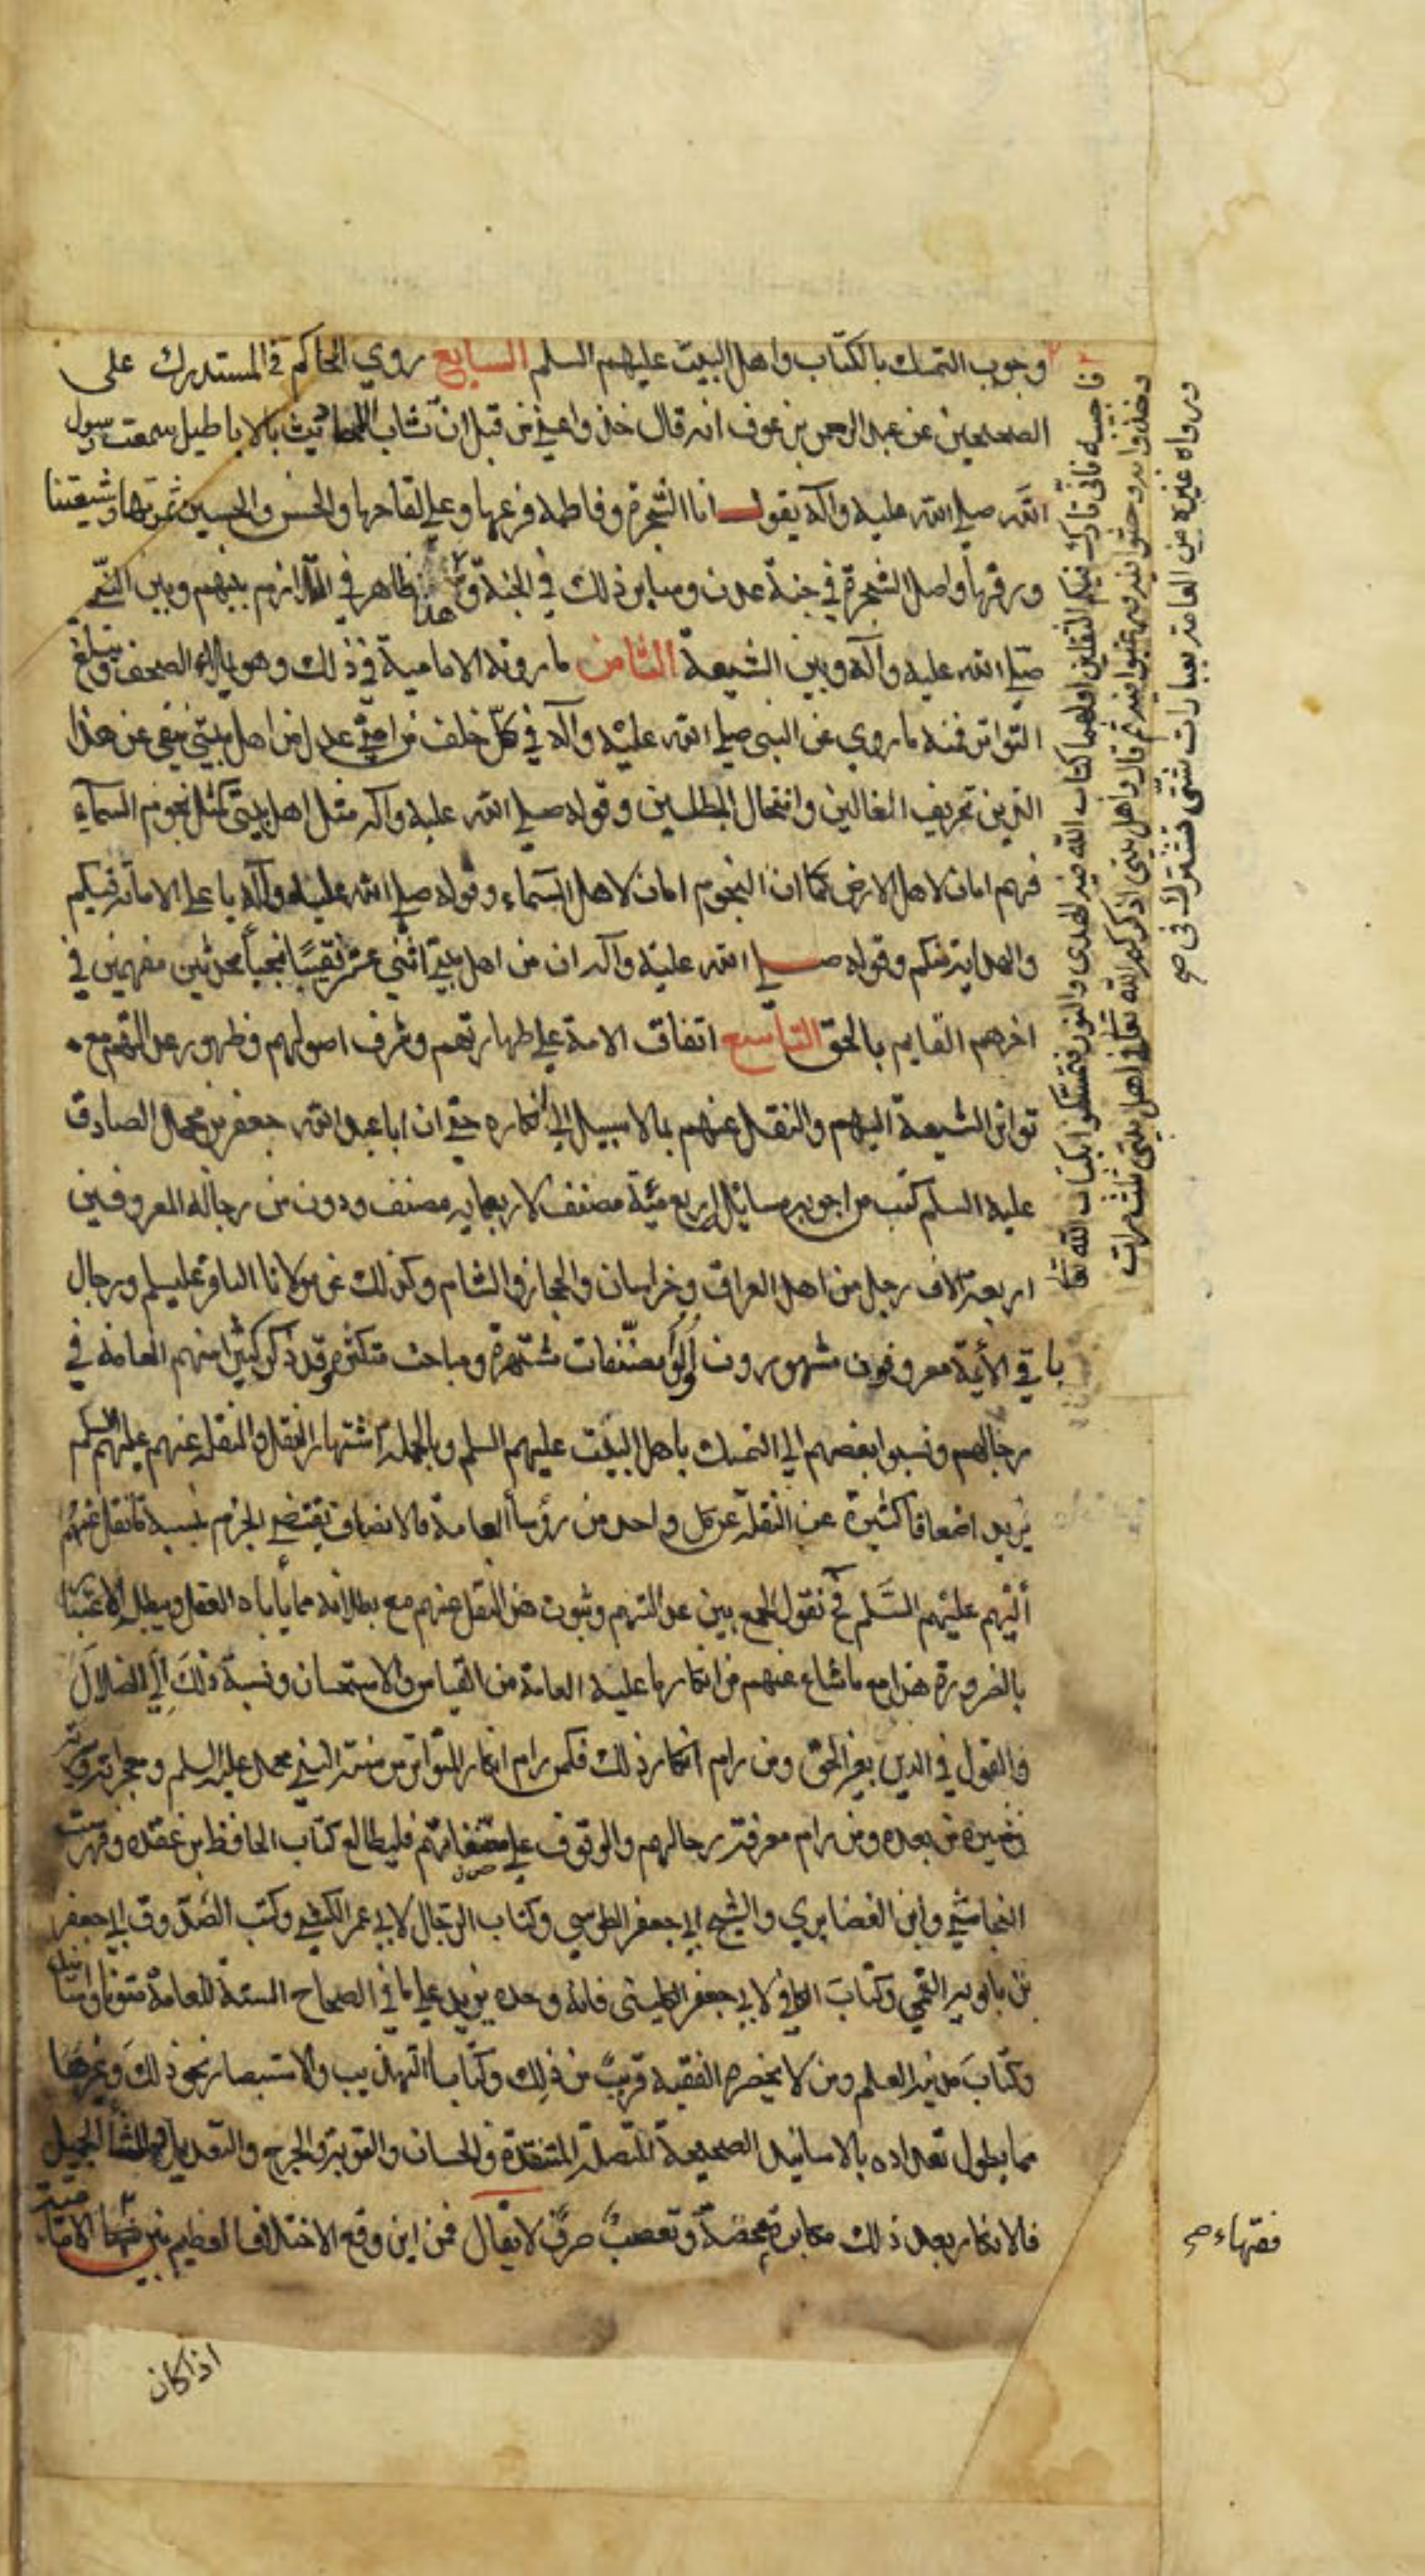 وجوب التمسك بالكتاب واهل البيت عليهم السلم السابع روي الحاكم في المستدرك على
الصحيحين عن عبد الرحمن بن عوف انه قال خذوا عني من قبل ان تشاب الاحاديث بالاباطيل سمعت رسول
الله صلى الله عليه وآله يقول انا الشجرة وفاطمة فرعها وعلي لقاحها والحسن والحسين ثمرتها وشيعتنا
ورقها واصل الشجرة في جنة عدن وساير ذلك في الجنة و هذا ظاهر في التلازم بينهم وبين النبي
صلى الله عليه وآله وبين الشيعة الثامن ما روته الامامية في ذلك وهو يملأ الصحف ويبلغ
التواتر فمنه ما روي عن النبي صلى الله عليه وآله في كل خلف من امتي عدل من اهل بيتي ينفي عن هذا
الدين تحريف الغالين وانتحال المبطلين وقوله صلى الله عليه وآله مثل اهل بيتي كمثل نجوم السماء
فهم امان لاهل الارض كما ان النجوم امان لاهل السماء وقوله صلى الله عليه وآله يا علي الامامة فيكم
والهداية منكم وقوله صلى الله عليه وآله ان من اهل بيتي اثني عشر نقيبا نجيبا محدثين مفهمين في
اخرهم القايم بالحق التاسع اتفاق الامة على طهارتهم وشرف اصولهم وظهور عدالتهم مع
تواتر الشيعة اليهم والنقل عنهم بما لا سبيل الى انكاره حتى ان ابا عبد الله جعفر بن محمد الصادق
عليه السلم كتب من اجوبه مسايله اربع مئة مصنف لاربعمايه مصنف ودون من رجاله المعروفين
اربعة الاف رجل من اهل العراق وخراسان والحجاز والشام وكذلك عن مولانا الباقر عليه السلم ورجال
باقي الأئمة معروفون مشهورون اولوا مصنفات مشتهرة ومباحث متكثرة وقد ذكر كثيرا منهم العامة في
رجالهم ونسبوا بعضهم الى التمسك باهل البيت عليهم السلم وبالجملة اشتهار النقل والنقلة عنهم عليهم السلم
يزيد اضعافا كثيرة عن النقلة عن كل واحد من رؤساء العامة فالانصاف يقتضي الجزم بنسبة ما نقل عنهم
أليهم عليهم السلم فح نقول الجمع بين عدالتهم وثبوت هذا النقل عنهم مع بطلانه مما يأباه العقل ويبطله الاعتبار
بالضرورة هذا مع ما شاع عنهم من انكار ما عليه العامة من القياس والاستحسان ونسبة ذلك الى الضلال
والقول في الدين بغير الحق ومن رام انكار ذلك فكمن رام انكار المتواتر من سنة النبي محمد عليه السلم ومعجزاته وسيرته
وغيره من بعده ومن رام معرفة رجالهم والوقوف على مصنفاتهم فليطالع كتاب الحافظ بن عقده وفهرست
النجاشي وابن الغضايري والشيخ ابي جعفر الطوسي وكتاب الرجال لابي عمر الكشي وكتب الصدوق ابي جعفر
بن بابويه القمي وكتاب الكافي لابي جعفر الكليني فانه وحده يزيد على ما في الصحاح الستة للعامة متونا واسانيد
وكتاب مدينة العلم ومن لا يحضره الفقيه قريب من ذلك وكتابا التهذيب والاستبصار نحو ذلك وغيرها
مما يطول تعداده بالاسانيد الصحيحة المتصلة المنتقدة والحسان والقوية والجرح والتعديل والثناء الجميل
فالانكار بعد ذلك مكابرة محضة وتعصب صرف لا يقال فمن اين وقع الاختلاف العظيم بين فقهاء الامامية
اذا كان
فاجيبه فاني تارك فيكم الثقلين اولهما كتاب الله فيه الهدى والنور فتمسكوا بكتاب الله تعالى
وخذوا به وحث عليه ورغب فيه ثم قال واهل بيتي اذكركم الله تعالى في اهل بيتي ثلث مرات
ورواه غيره من العامة بعبارات شتى تشترك في صح
فقهاء صح